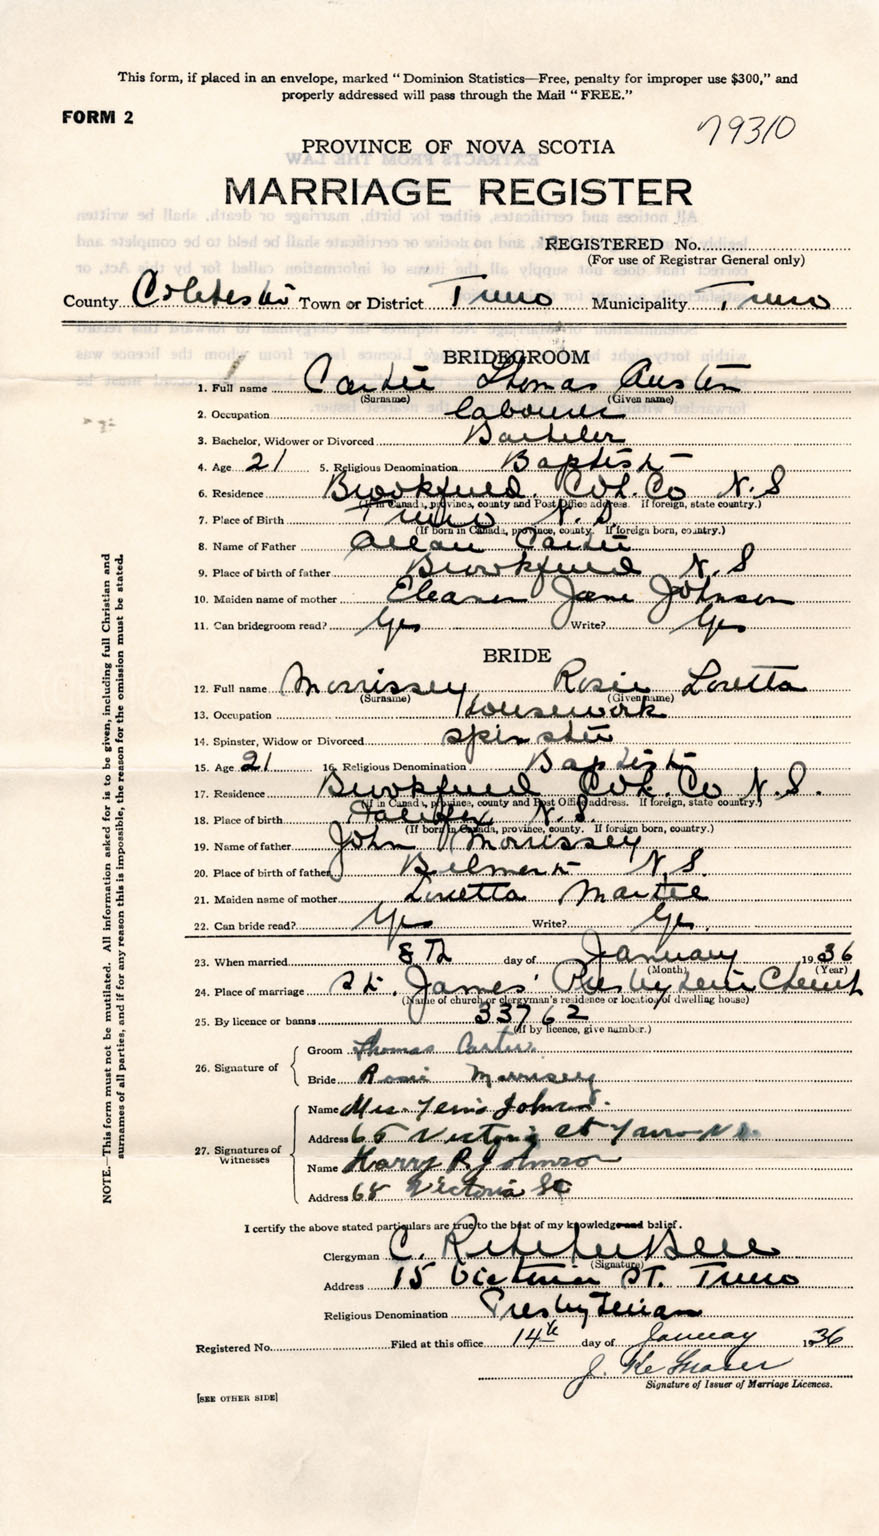 This form, if placed in an envelope, marked “Dominion Statistics—Free, penalty for improper use $300,” and
properly addressed will pass through the Mail “FREE.”
FORM 2
79310
PROVINCE OF NOVA SCOTIA
MARRIAGE REGISTER
REGISTERED No.
(For use of Registrar General only)
County Colchester Town or District Truro Municipality Truro
BRIDEGROOM
1. Full name Carter Thomas Austen
(Surname) (Given name)
2. Occupation labourer
3. Bachelor, Widower or Divorced Bachelor
4. Age 21 5. Religious Denomination Baptist
6. Residence Brookfield. Col. Co N.S
(If in Canada, province, county and Post Office address. If foreign, state country.)
7. Place of Birth Truro N.S.
(If born in Canada, province, county. If foreign born, country.)
8. Name of Father Allan Carter
9. Place of birth of father Brookfield N.S
10. Maiden name of mother Eleanor Jane Johnson
11. Can bridegroom read? Yes Write? Yes
BRIDE
12. Full name Morrissey Rosie Loretta
(Surname) (Given name)
13. Occupation Housework
14. Spinster, Widow or Divorced spinster
15. Age 21 16. Religious Denomination Baptist
17. Residence Brookfield Col. Co N.S.
(If in Canada, province, county and Post Office address. If foreign, state country.)
18. Place of birth Halifax N.S.
(If born in Canada, province, county. If foreign born, country.)
19. Name of father John Morrissey
20. Place of birth of father Belmont N.S.
21. Maiden name of mother Loretta Martee
22. Can bride read? Yes Write? Yes.
23. When married 8Th day of January 1936
(Month) (Year)
24. Place of marriage St. James' Presbyterian Church
(Name of church or clergyman's residence or location of dwelling house)
25. By licence or banns 33762
(If by licence, give number.)
26. Signature of
Groom Thomas Carter
Bride Rosie Morrissey
27. Signatures of Witnesses
Name Mrs. Johnson
Address 68 Victoria St Truro N.S.
Name Harry R Johnson
Address 68 Victoria St
I certify the above stated particulars are true to the best of my knowledge and belief.
Clergyman C. Bell
(Signature)
Address 15 Victoria St. Truro
Religious Denomination Presbyterian
Registered No. Filed at this office 14th day of January 1936
J.
Signature of Issuer of Marriage Licences.
[SEE OTHER SIDE]
NOTE.—This form must not be mutilated. All information asked for is to be given, including full Christian and
surnames of all parties, and if for any reason this is impossible, the reason for the omission must be stated.